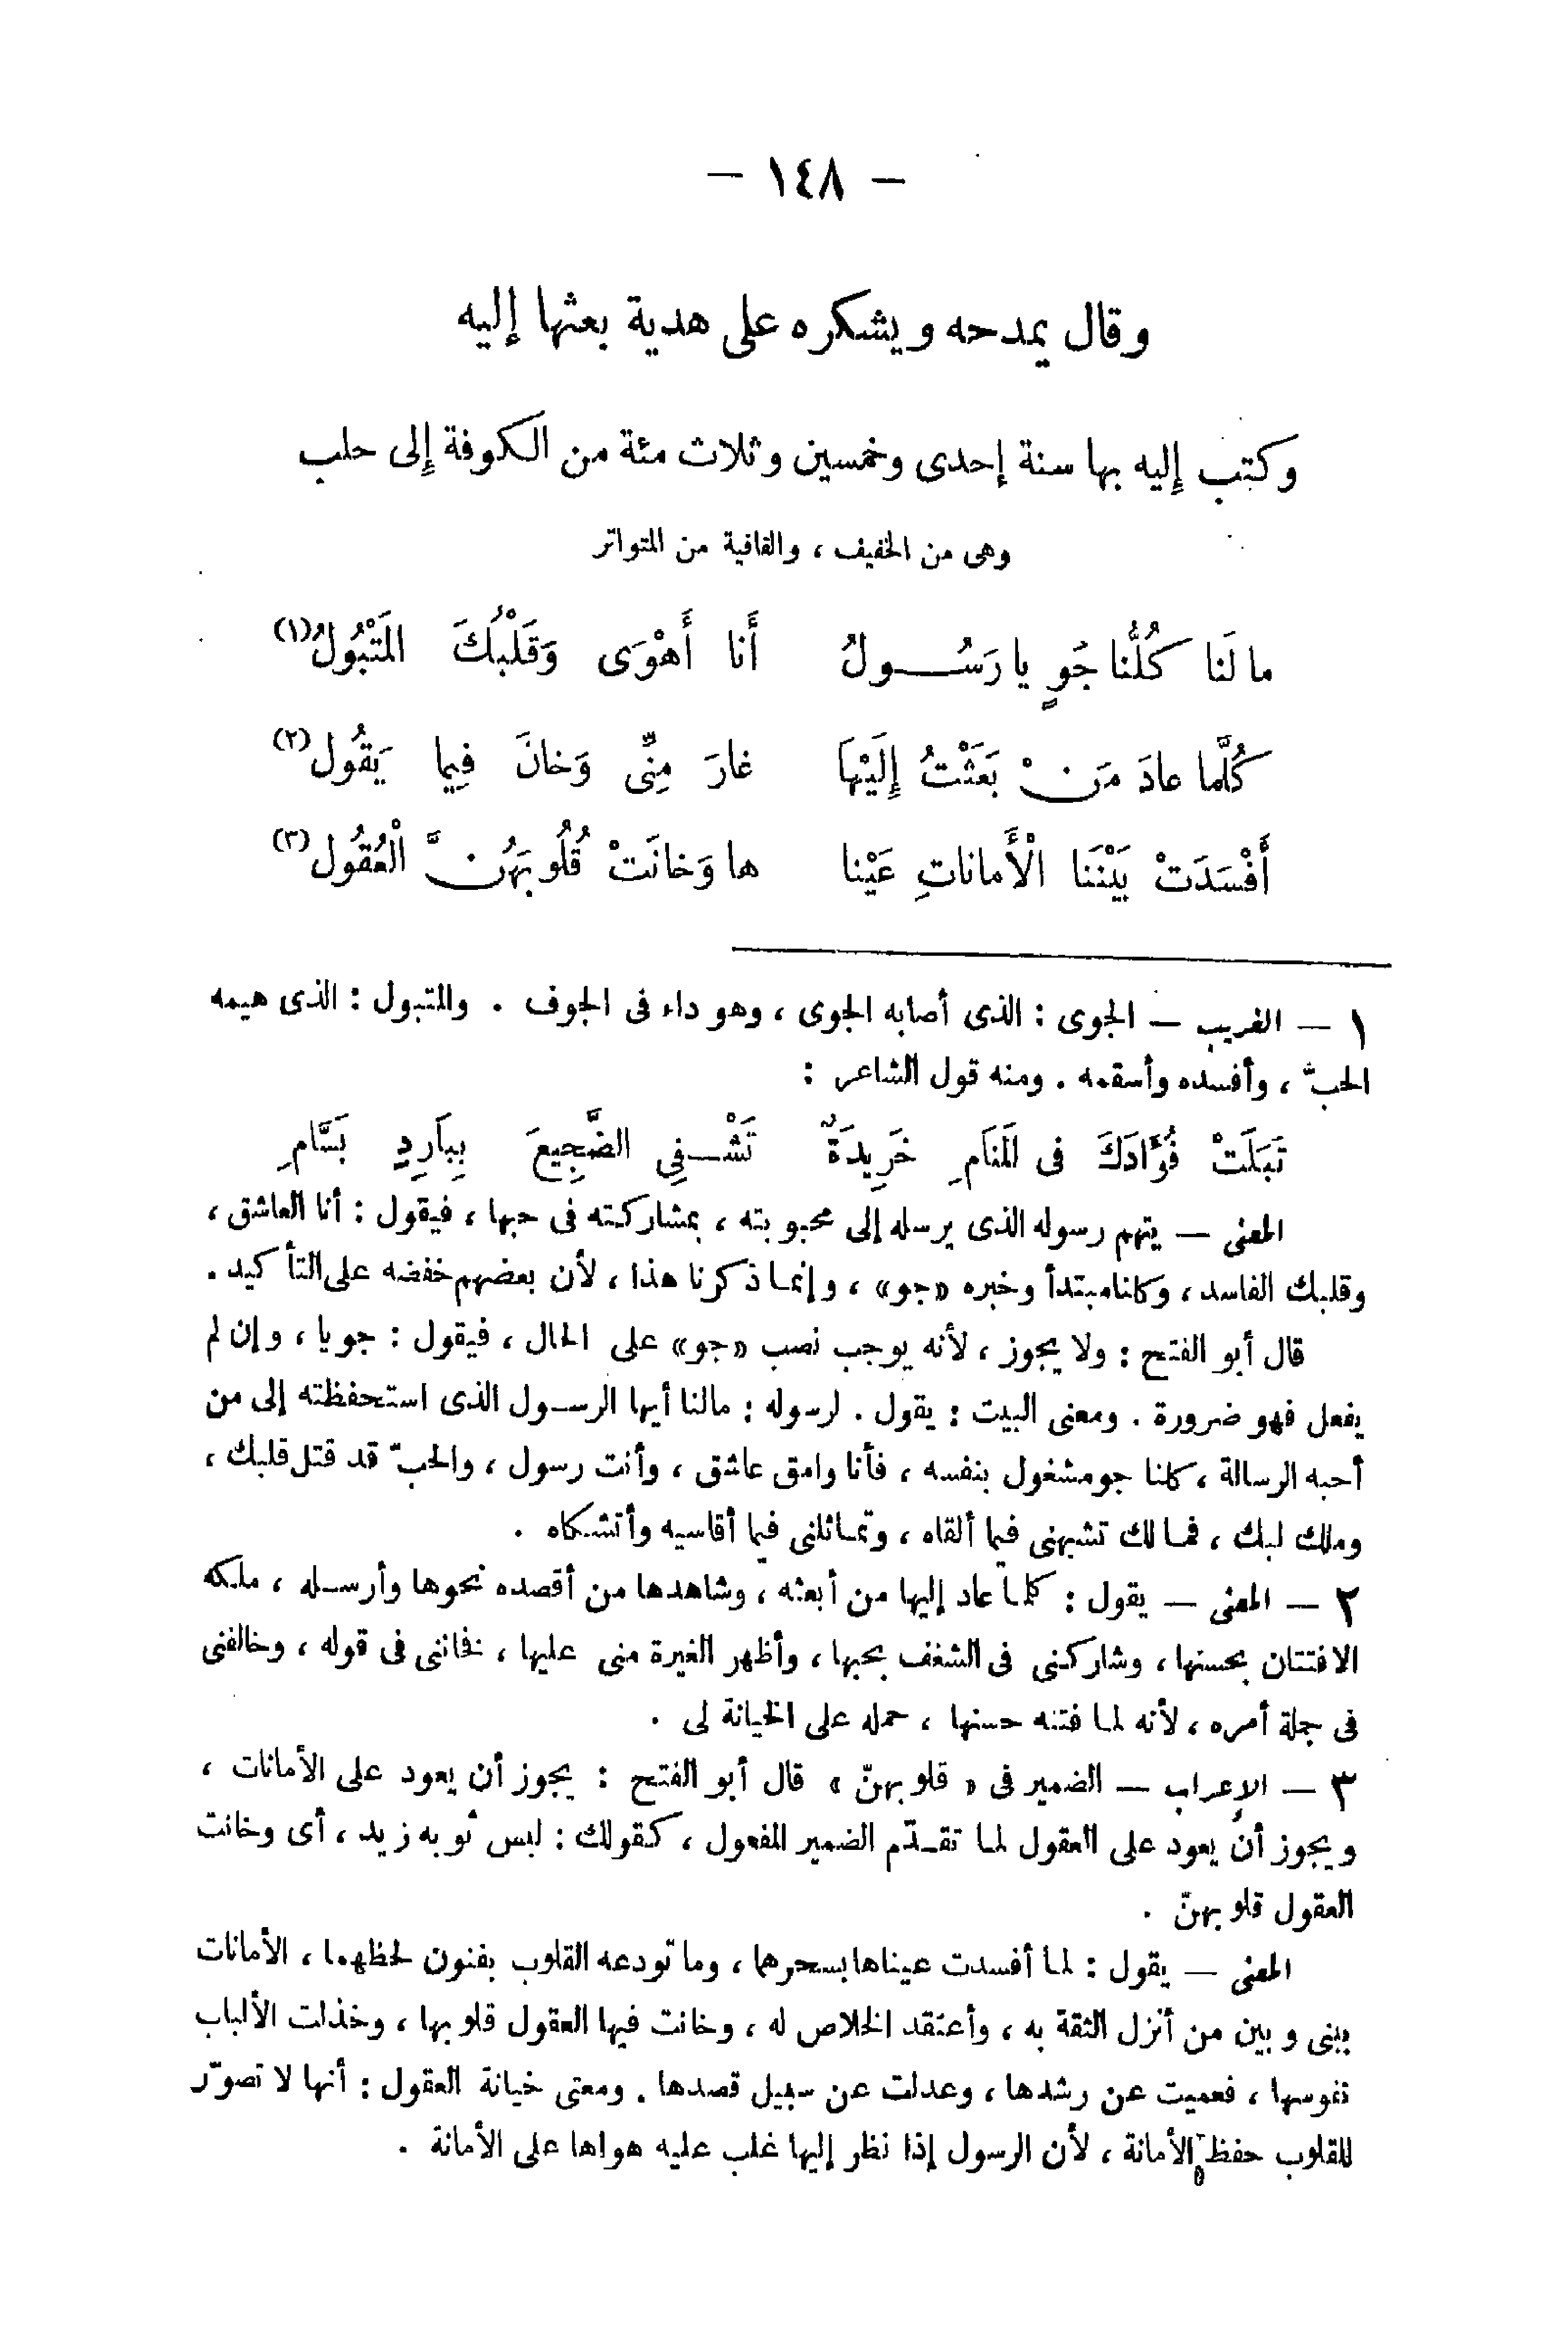 — ١٤٨ —
وقال يمدحه ويشكره على هدية بعثها إليه
وكتب إليه بها سنة إحدى وخمسين وثلاث مئة من الكوفة إلى حلب
وهى من الخفيف ، والقافية من المتواتر
ما لَنا كُلُّنا جَوٍ يا رَسُـــولُ أَنا أَهْوَى وَقَلْبُكَ المَتْبُولُ(١)
كُلَّما عادَ مَنْ بَعَثْتُ إِلَيْهَا غارَ مِنِّى وَخانَ فِيما يَقُول(٢)
أَفْسَدَتْ بَيْنَنَا الْأَماناتِ عَيْنا ها وَخانَتْ قُلُوبَهُنَّ الْعُقُول(٣)
١ — الغريب — الجوى : الذى أصابه الجوى ، وهو داء فى الجوف . والمتبول : الذى هيمه
الحبّ ، وأفسده وأسقمه . ومنه قول الشاعر :
تَبَلَتْ فُؤَادَكَ فى المَنامِ خَرِيدَةٌ تَشْـفِي الضَّجِيعَ بِبَارِدٍ بَسَّامِ
المعنى — يتهم رسوله الذى يرسله إلى محبوبته ، بمشاركته فى حبها ، فيقول : أنا العاشق ،
وقلبك الفاسد ، وكلنا مبتدأ وخبره «جو» ، وإنما ذكرنا هذا ، لأن بعضهم خفضه على التأكيد .
قال أبو الفتح : ولا يجوز ، لأنه يوجب نصب «جو» على الحال ، فيقول : جويا ، وإن لم
يفعل فهو ضرورة . ومعنى البيت : يقول . لرسوله : مالنا أيها الرسـول الذى استحفظته إلى من
أحبه الرسالة ، كلنا جو مشغول بنفسه ، فأنا وامق عاشق ، وأنت رسول ، والحبّ قد قتل قلبك ،
وملك لبك ، فمالك تشبهنى فيما ألقاه ، وتماثلنى فيما أقاسيه وأتشكاه .
٢ — المعنى — يقول : كلما عاد إليها من أبعثه ، وشاهدها من أقصده نحوها وأرسله ، ملكه
الافتتان بحسنها ، وشاركنى فى الشغف بحبها ، وأظهر الغيرة منى عليها ، فخاننى فى قوله ، وخالفنى
فى جملة أمره ، لأنه لما فتنه حسنها ، حمله على الخيانة لى .
٣ — الإعراب — الضمير فى « قلوبهنّ » قال أبو الفتح : يجوز أن يعود على الأمانات ،
ويجوز أن يعود على العقول لما تقـدّم الضمير المفعول ، كقولك : لبس ثوبه زيد ، أى وخانت
العقول قلوبهنّ .
المعنى — يقول : لما أفسدت عيناها بسحرهما ، وما تودعه القلوب بفنون لحظهما ، الأمانات
بينى وبين من أنزل الثقة به ، وأعتقد الخلاص له ، وخانت فيها العقول قلوبها ، وخذلت الألباب
نفوسها ، فعميت عن رشدها ، وعدلت عن سبيل قصدها . ومعنى خيانة العقول : أنها لا تصوّر
للقلوب حفظ الأمانة ، لأن الرسول إذا نظر إليها غلب عليه هواها على الأمانة .